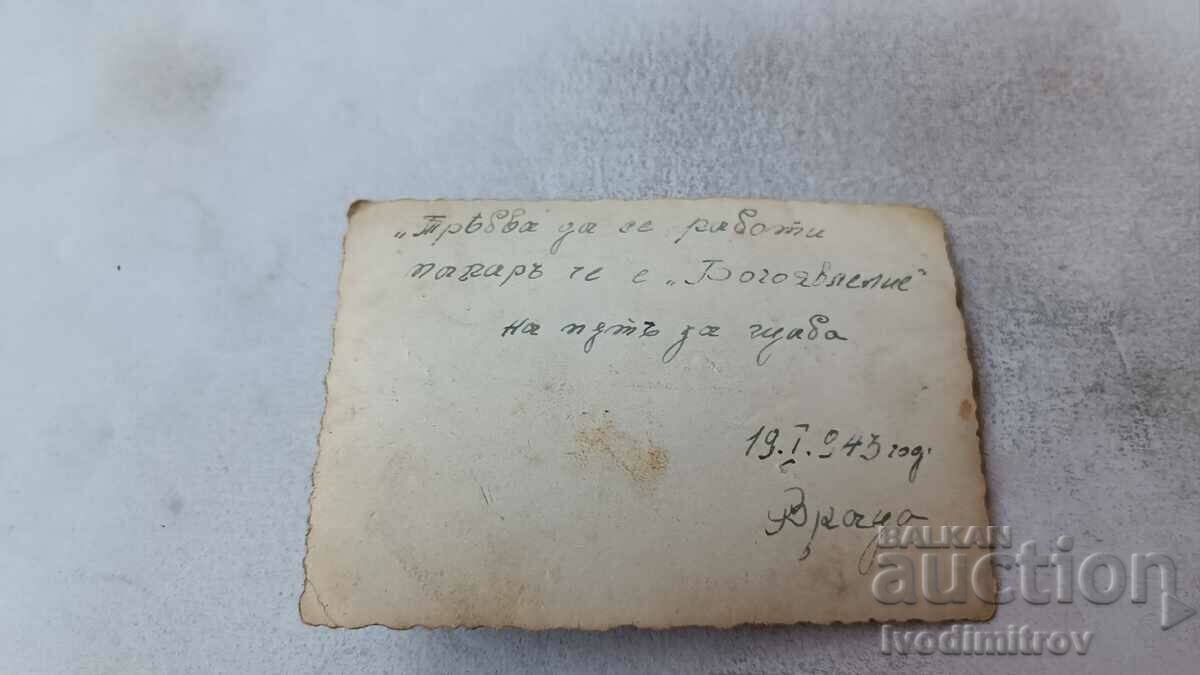 „Трѣбва да се работи
макаръ че е „Богоявление"
на пѫтъ за щаба
19.I.943 год.
Враца
BALKAN
auction
Ivodimitrov